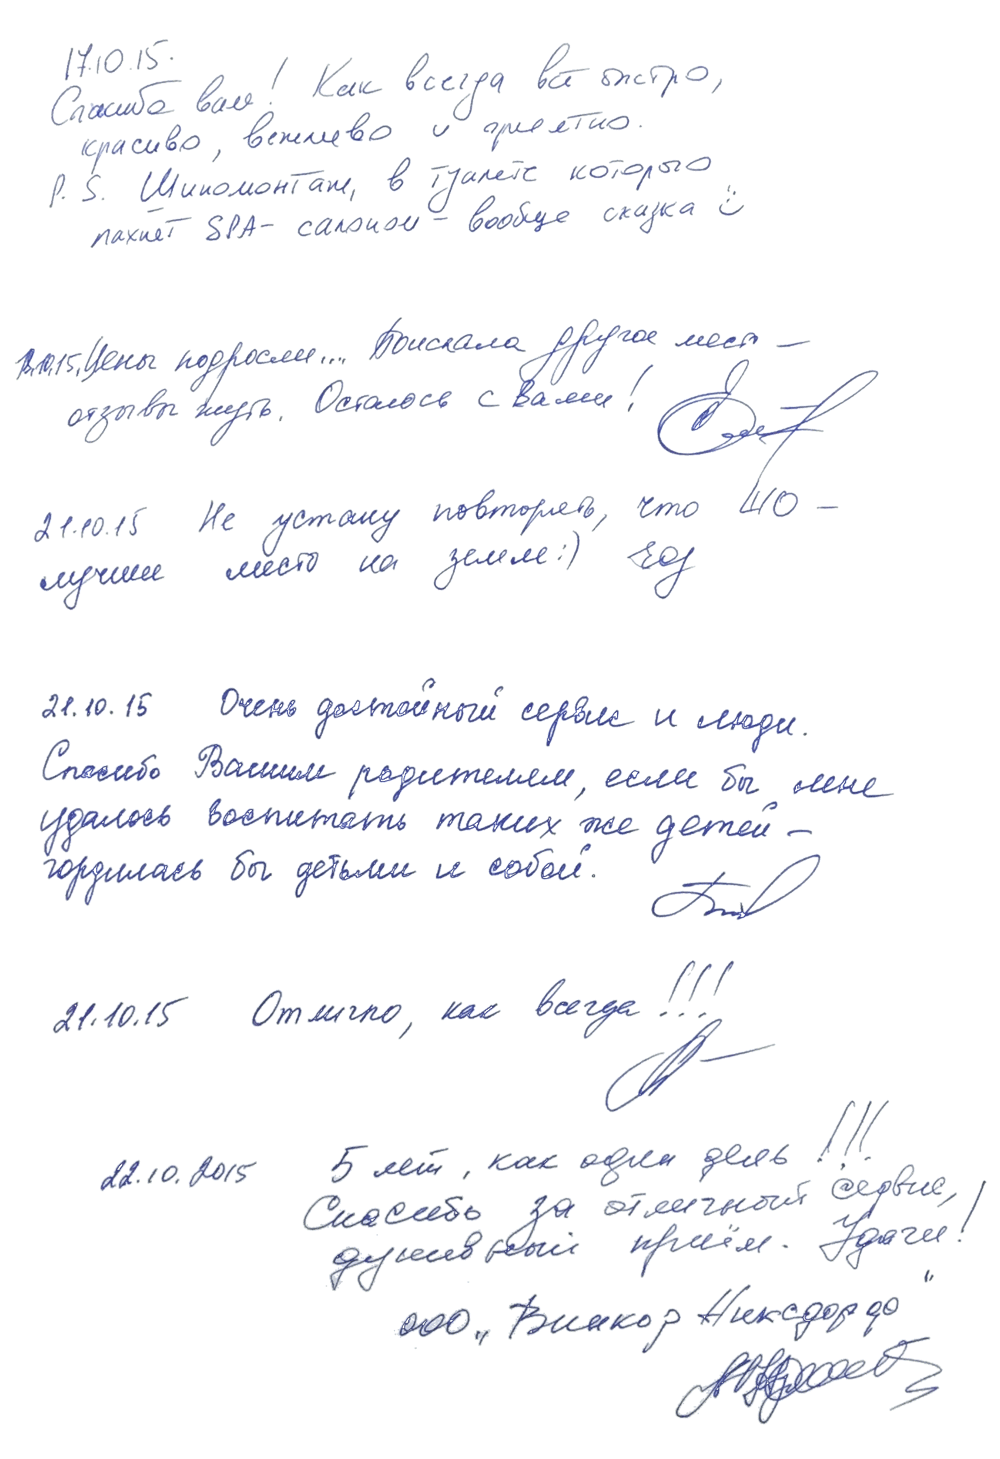 17.10.15.
Спасибо вам! Как всегда всё быстро,
красиво, вежливо и приятно.
P.S. Шиномонтаж, в туалете которого
пахнет SPA-салоном - вообще сказка
Цены подросли... Поискала другое мест -
отзывы жуть. Осталось с Вами!
21.10.15 Не устану повторять, что ШО -
лучшее место на земле:)
21.10.15 Очень достойный сервис и люди.
Спасибо Вашим родителям, если бы мне
удалось воспитать таких же детей -
гордилась бы детьми и собой.
21.10.15 Отлично, как всегда!!!
22.10.2015 5 лет, как один день!!!
Спасибо за отличный сервис,
душевный приём. Удачи!
ООО „Винкор Никсдорф"